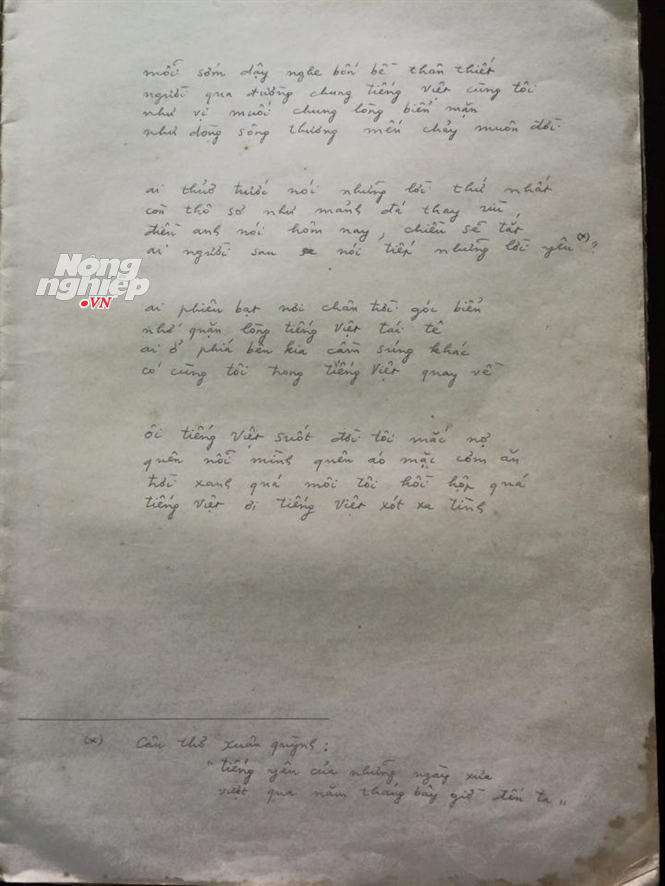 mỗi sớm dậy nghe bốn bề thân thiết
người qua đường chung tiếng Việt cùng tôi
như vị muối chung lòng biển mặn
như dòng sông thương mến chảy muôn đời.
ai thuở trước nói những lời thứ nhất
còn thô sơ như mảnh đá thay rìu
điều anh nói hôm nay, chiều sẽ tắt
ai người sau nói tiếp những lời yêu (x)?
Nông
nghiệp
.VN
ai phiêu bạt nơi chân trời góc biển
nhớ quặn lòng tiếng Việt tái tê
ai ở phía bên kia cầm súng khác
có cùng tôi trong tiếng Việt quay về
ôi tiếng Việt suốt đời tôi mắc nợ
quên nỗi mình quên áo mặc cơm ăn
trời xanh quá môi tôi hồi hộp quá
tiếng Việt ơi tiếng Việt xót xa tình
(x) Câu thơ xuân quỳnh:
"tiếng yêu của những ngày xưa
vượt qua năm tháng bây giờ đến ta"